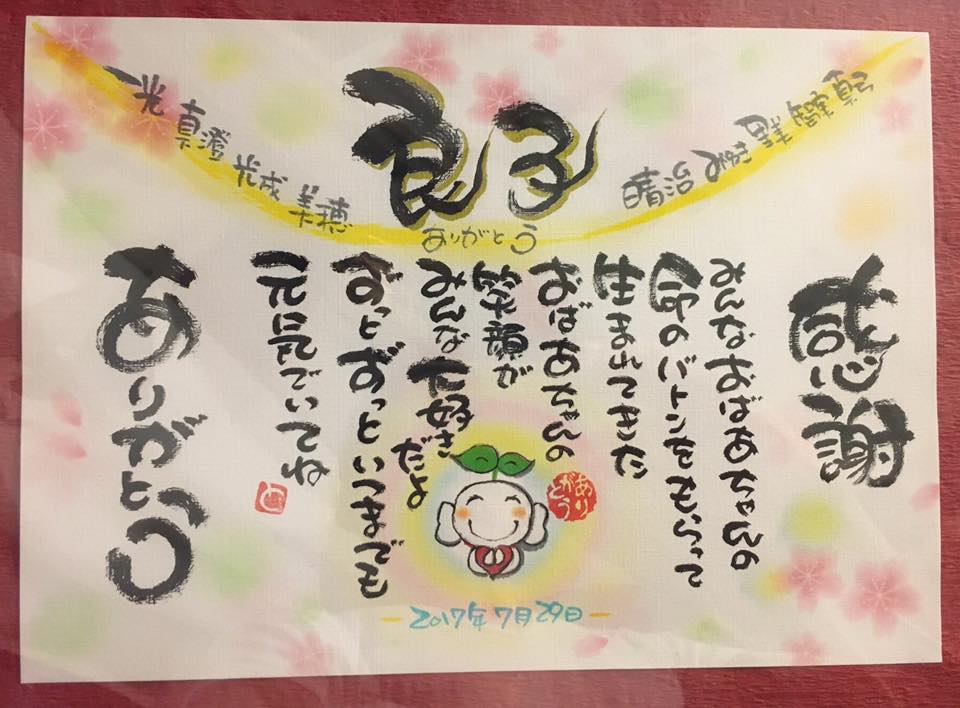 良子
ありがとう
一光 真澄 光成 美穂
晴治 みゆき
感謝
みんなおばあちゃんの
命のバトンをもらって
生まれてきた
おばあちゃんの
笑顔が
みんな大好きだよ
ずっとずっといつまでも
元気でいてね
ありがとう
ありがとう
2017年7月29日